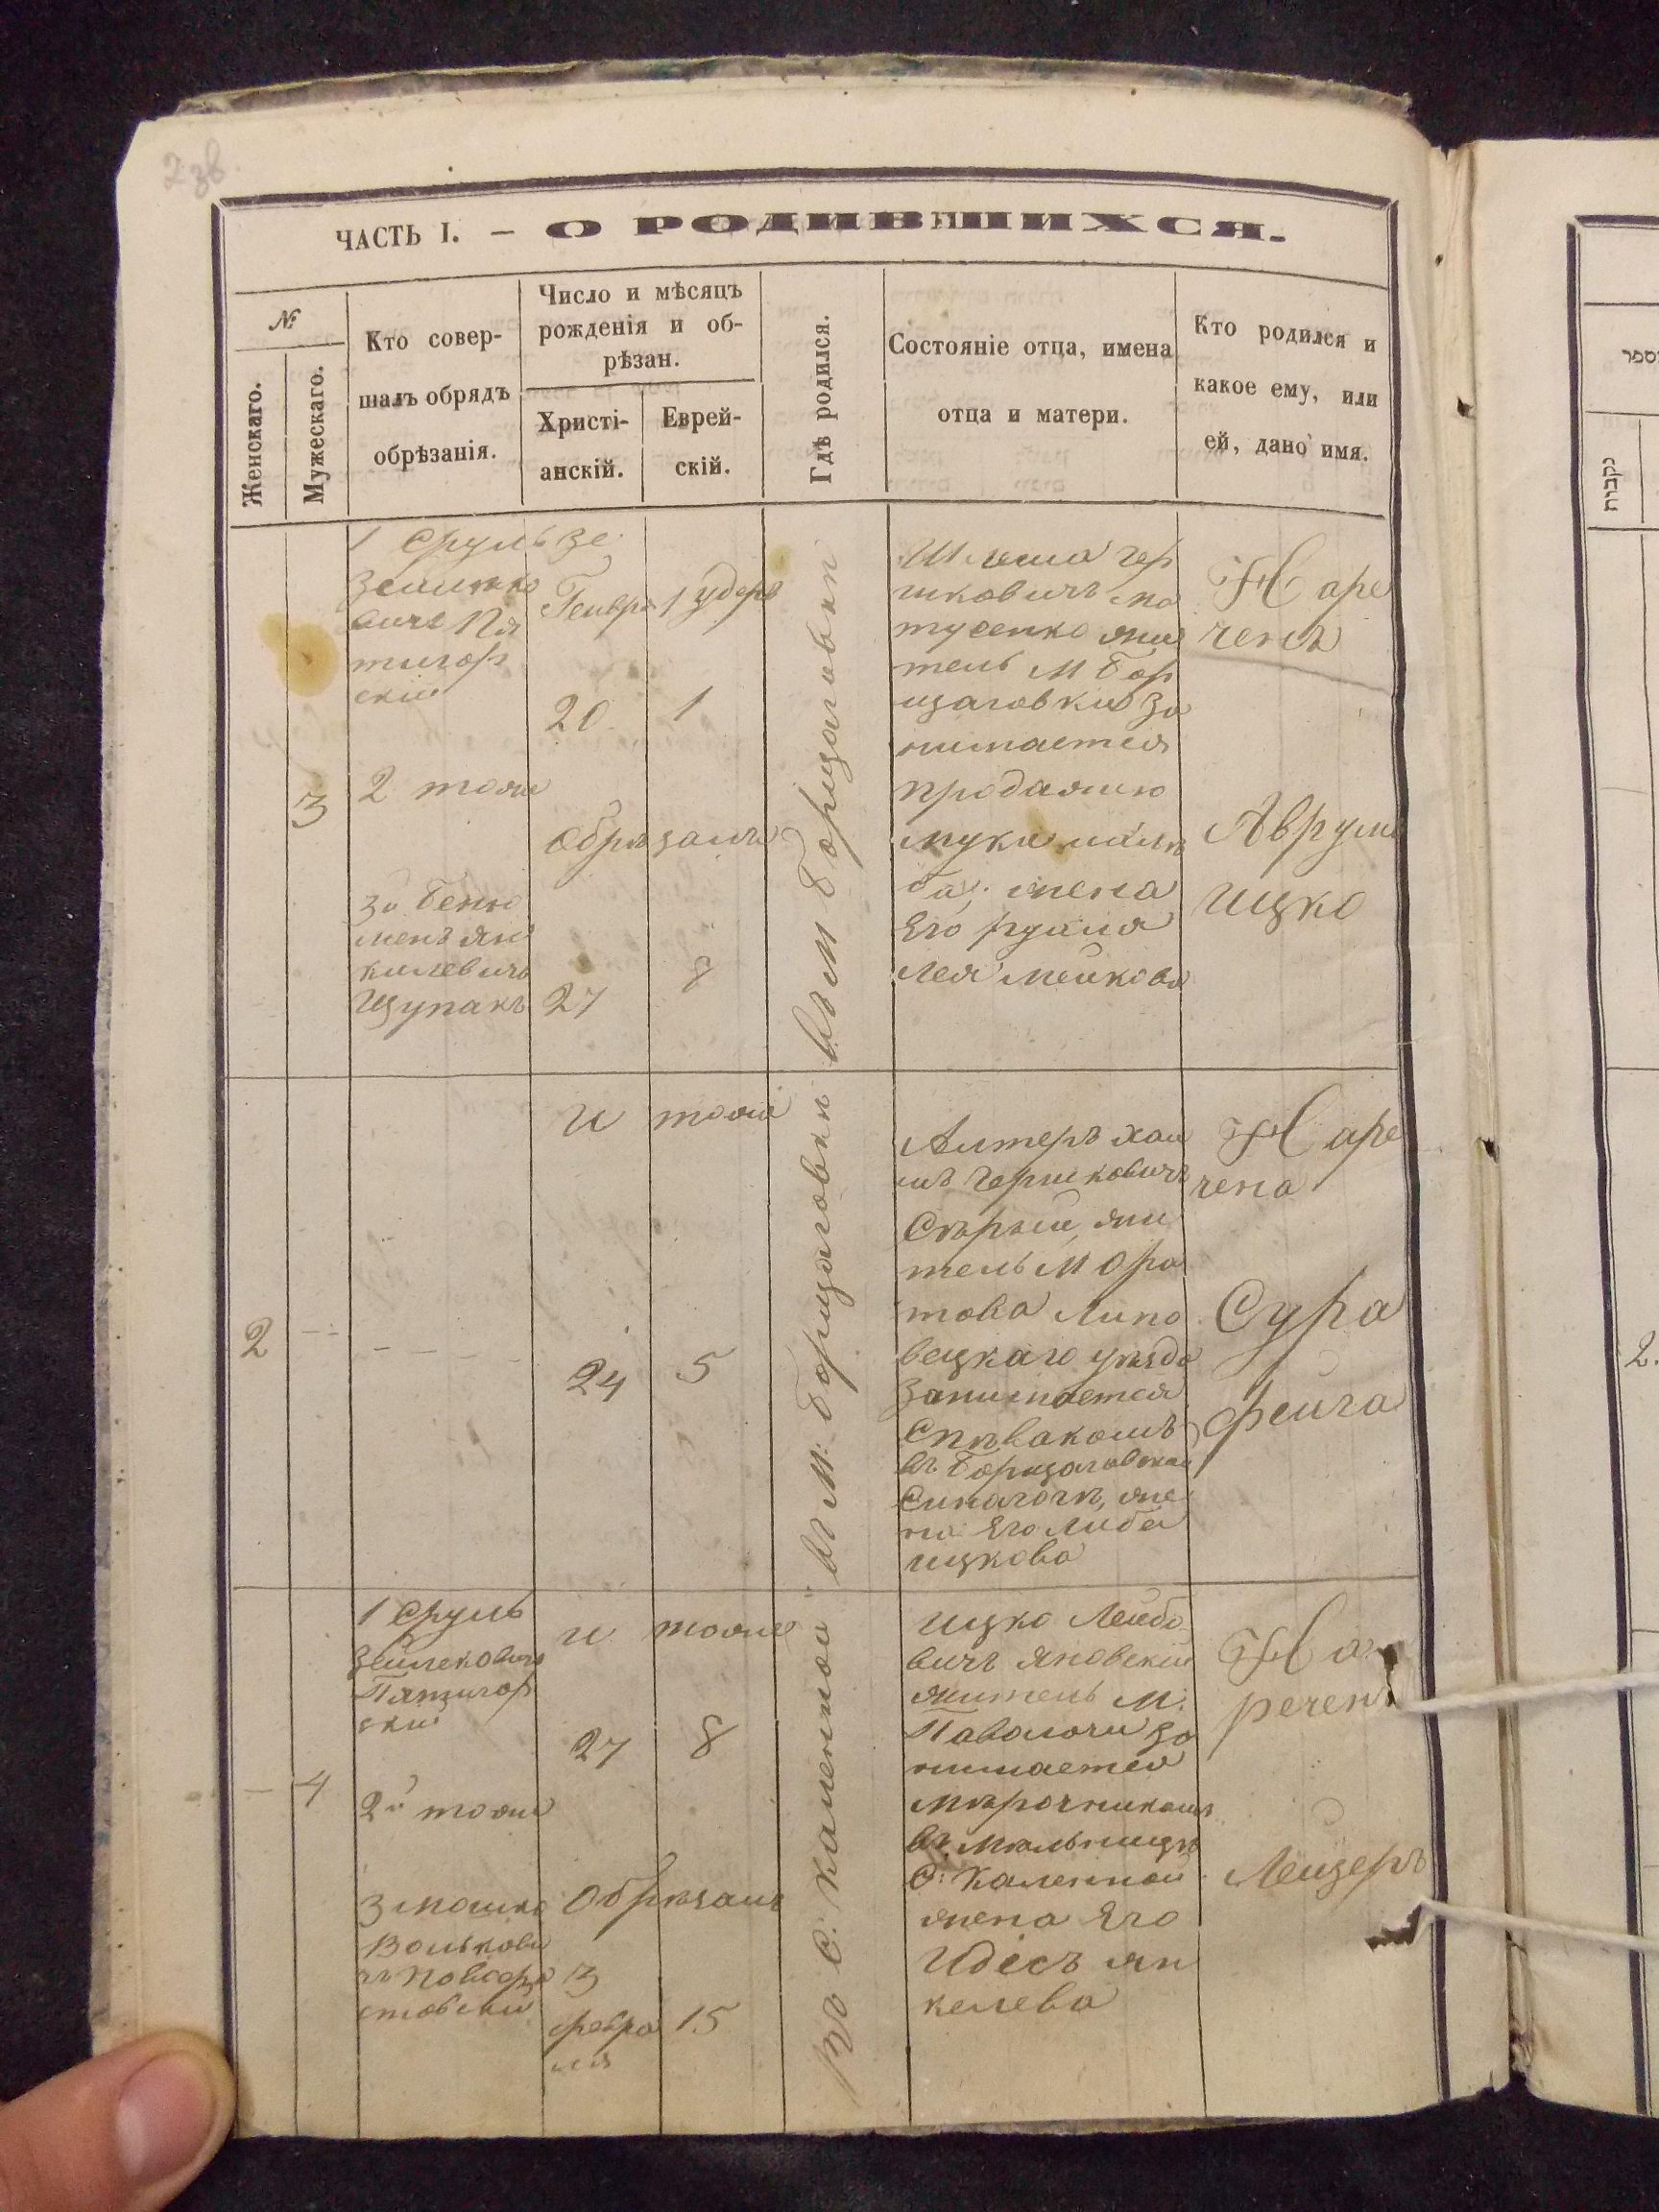 ЧАСТЬ I. — О РОДИВШИХСЯ.
№
Женскаго.
Мужескаго.
Кто совер-
шалъ обрядъ
обрѣзанія.
Число и мѣсяцъ
рожденія и об-
рѣзан.
Христі-
анскій.
Еврей-
скій.
Гдѣ родился.
Состояніе отца, имена
отца и матери.
Кто родился и
какое ему, или
ей, дано имя.
3
1 Сруль Зе
вичъ Пя
тигор
скій
2 тоже
3й Беню
менъ Ян
келевичъ
Щупакъ
Генвря 1
20 1
Обрѣзанъ
27 8
въ м Борщаговки
Шлема Гер
шковичъ Ма
тусенко жи
тель м Бор
щаговки за
нимается
продажею
муки
жена
Его
Лея Мейкова
Наре
ченъ
Аврумъ
Ицко
2
- - - -
и тоже
24 5
въ м: Борщаговки
Алтеръ Хаи
мъ Гершковичъ
Сѣрый, жи
тель м Ора
това Липо
вецкаго уѣзда
Занимается
Спѣвакомъ
въ Борщаговской
Синагогѣ, же
на Его Либа
Ицкова
Наре
чена
Сура
Фейга
— 4
1 Сруль
Зейлековичъ
Пятигор
скій
2й тоже
3 Мошко
Волькови
чъ
и тоже
27 8
Обрѣзанъ
3
февра 15
ля
во с: Каленной
Ицко Лейбо
вичъ Яновскій
житель м.
Паволочи за
нимается
мѣрочникомъ
въ мельницѣ
с: Каленной
жена Его
Идесъ Ян
келева
На
реченъ
Лейзеръ
2.